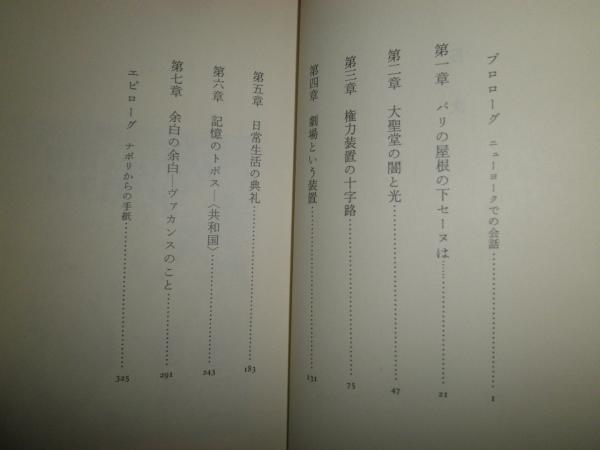 プロローグ ニューヨークでの会話……1
第一章 パリの屋根の下セーヌは……21
第二章 大聖堂の闇と光……47
第三章 権力装置の十字路……75
第四章 劇場という装置……131
第五章 日常生活の典礼……183
第六章 記憶のトポス―〈共和国〉……243
第七章 余白の余白―ヴァカンスのこと……291
エピローグ ナポリからの手紙……325